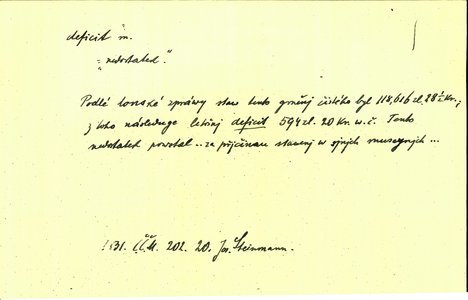 deficit m.
= "nedostatek".
Podlé lonské zpráwy staw tento gměnj čistého byl 118,616 zl. 28½ kr.;
z toho následuge letošnj deficit 594 zl. 20 kr. w. č. Tento
nedostatek powstal .. za přjčinau stawenj w musegnjch ...
1831. ČČM. 202. 20. Jos. Steinmann.